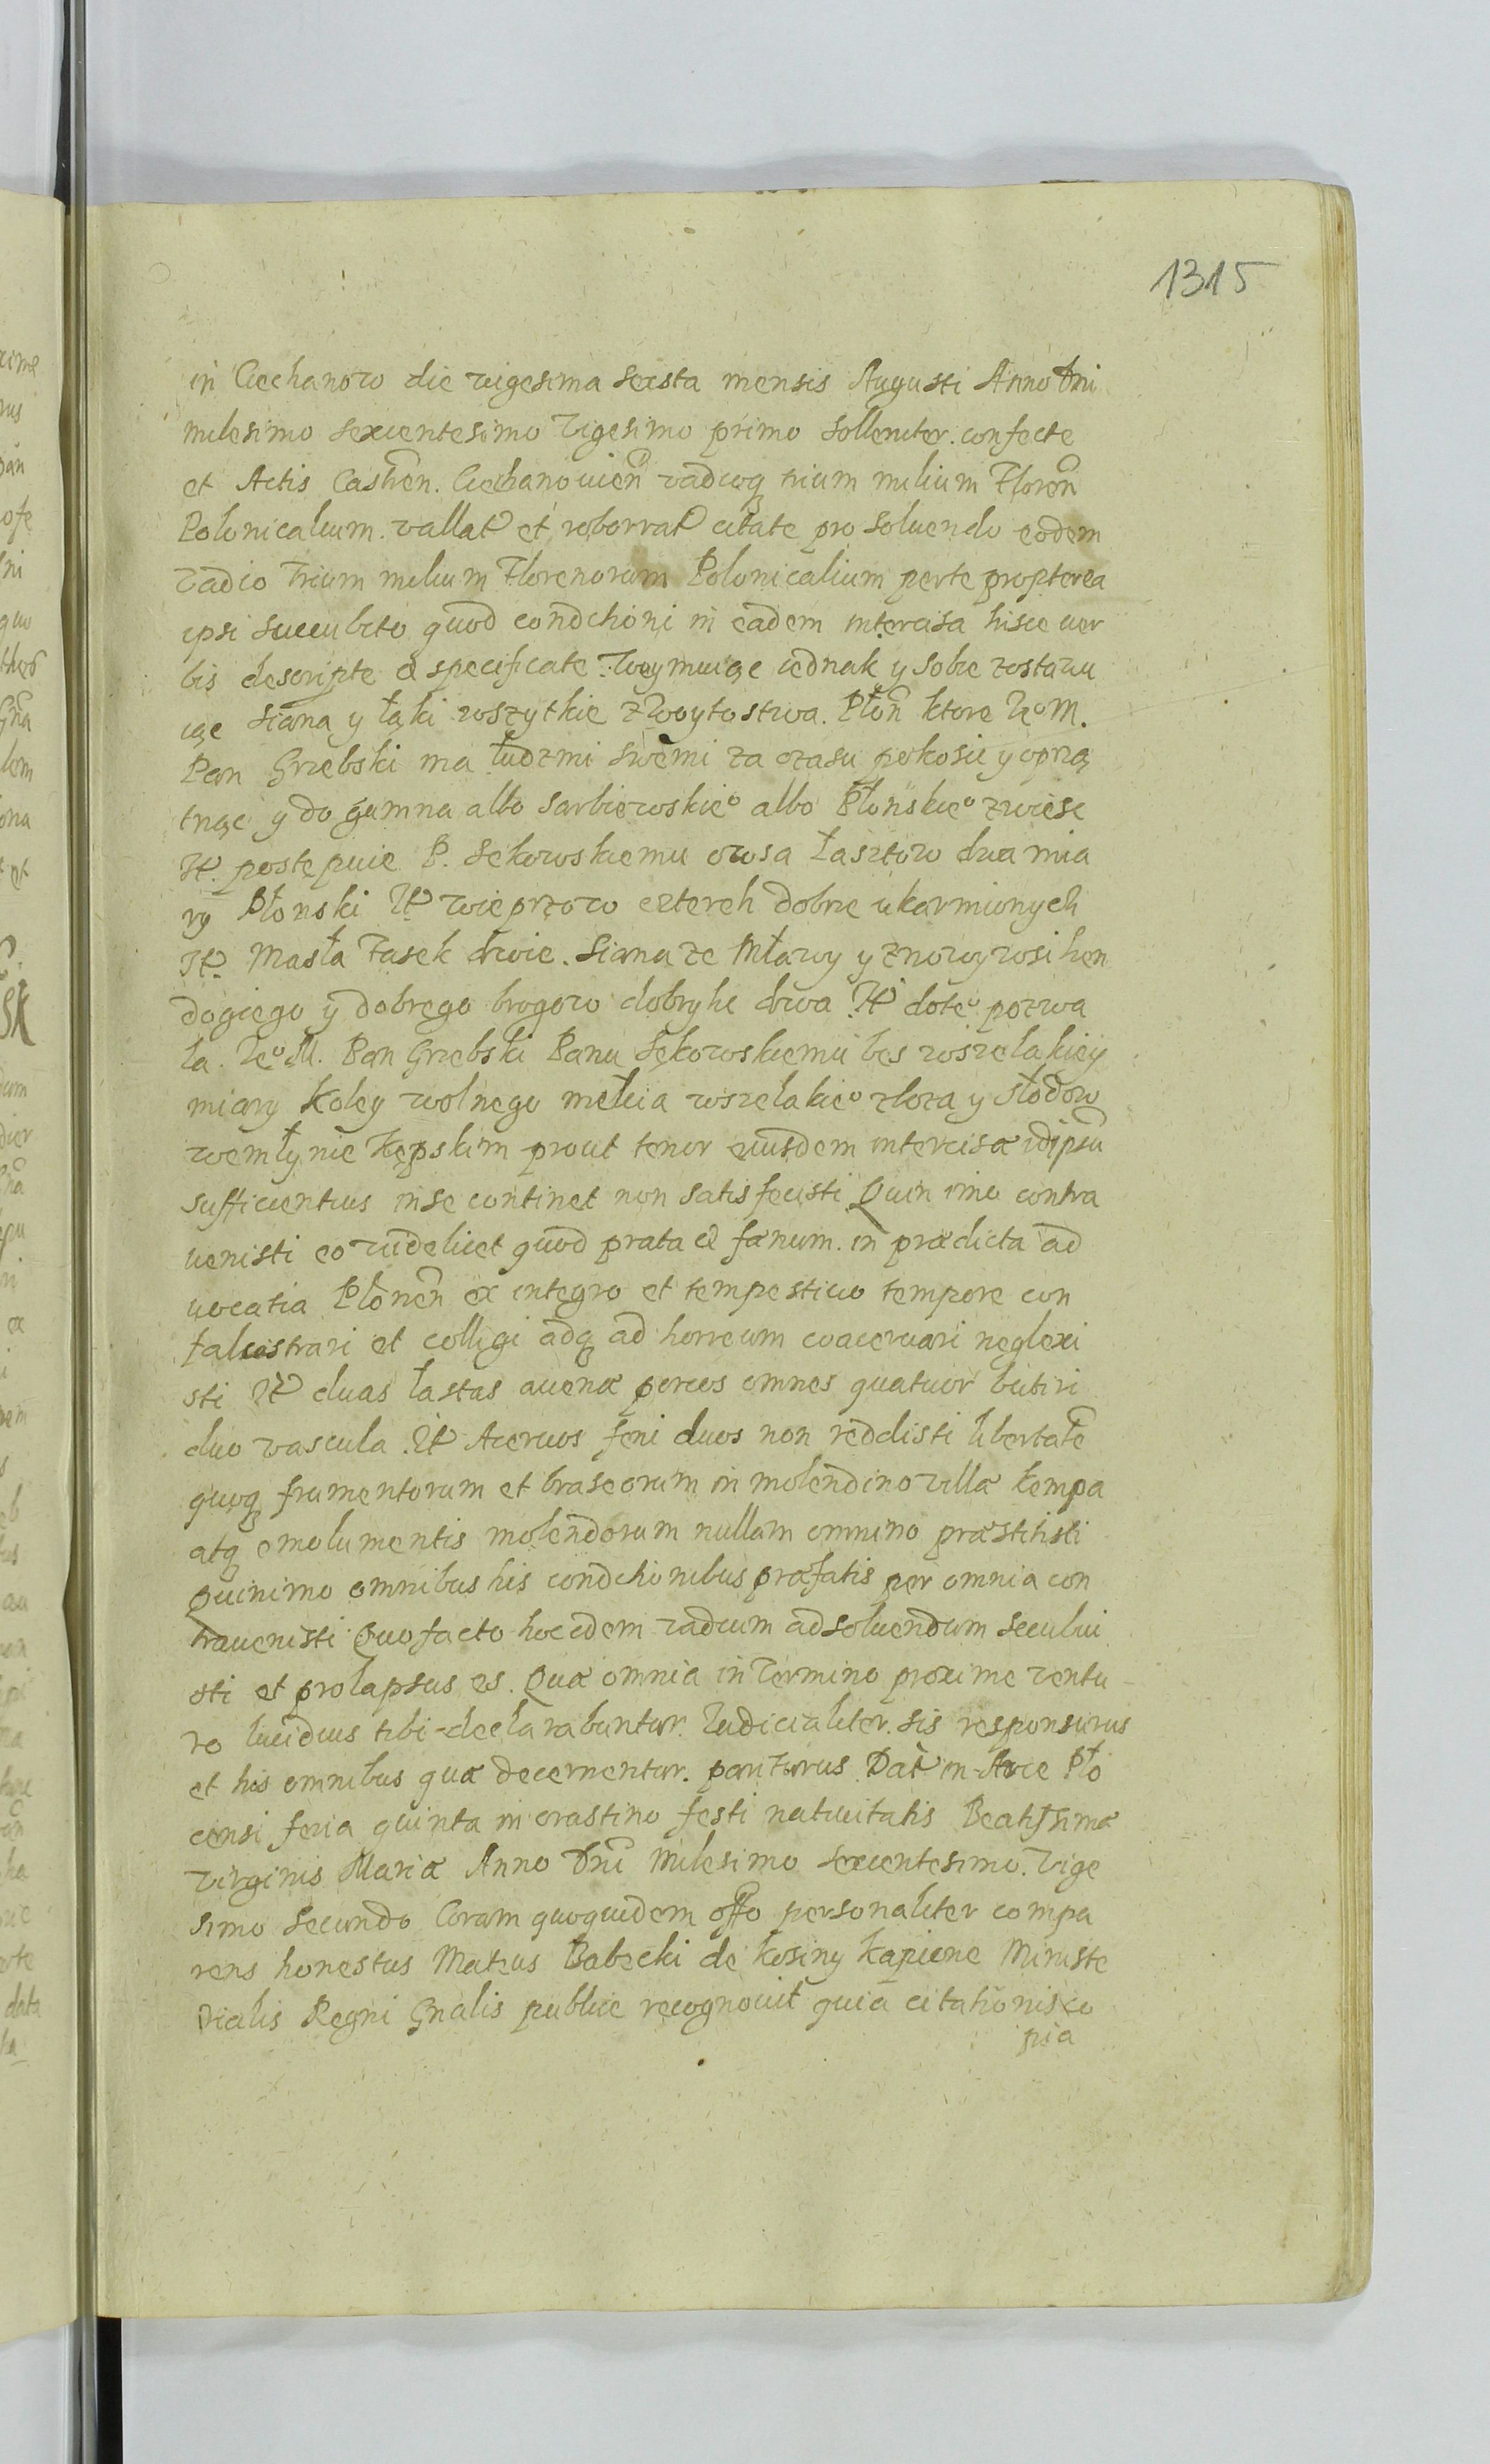 1315
in Ciechanow die vigesima sexta mensis Augusti Anno Dni
milesimo sexcentesimo Vigesimo primo Sollenniter. confecte
et Actis Castren. Ciechanouien vadioq trium milium Floren
Polonicalium. vallat et roborrat citate pro soluendo eodem
Vadio trium milium Florenorum Polonicalium perte propterea
ipsi succubito quod condchoni in eadem intercisa hisce uer
bis descripte & specificate. Wymuiąc iednak y sobie zostawu
iąc Siana y łąki wszytkie z Woytostwa. Płon ktore Ieo M.
Pan Grzebski ma ludzmi swemi za czasu pokosic y oprzą
tnąc y do gumna albo Sarbiewskieo albo Płonskieo zwiesc
It. postepuie P. Sekowskiemu owsa Łasztow dwa mia
ry Płonski It wieprzow czterech dobrze ukarmionych
It. Masła Fasek dwie. Siana ze Mławy y z
dogiego y dobrego brogow dobryhc dwa It doteo pozwa
la. Ieo M. Pan Grzebski Panu Sękowskiemu bes wszelakiey
miary Koley wolnego mełcia wszelakieo zboza y słodow
wemłynie Kępskim prout tenor eiusdem intercisæ idipsu
sufficientius inse continet non satisfecisti Quin imo contra
uenisti eo videlicet quod prata & fænum. in prædicta ad
uocatia Płonen ex integro et tempestiuo tempore con
falcastrari et colligi adq ad horreum coaceruari neglexi
sti It duas lastas auenæ porcos omnes quatuor butiri
duo vascula. It Aceruos feni duos non reddisti libertate
quoq frumentorum et braseorum in molendino villæ Kempa
atq emolumentis molendorum nullam omnino præstitisti
Quinimo omnibus his condchonibus præfatis per omnia con
trauenisti Quo facto hocidem vadium adsoluendum succubui
sti et prolapsus es. Quæ omnia in Termino proxime ventu
ro lucidius tibi declarabuntur. Iudicialiter. sis responsurus
et his omnibus quæ decernentur. pariturus Dat in Arce Pło
censi feria quinta in crastino festi natiuitatis Beatissimæ
Virginis Mariæ Anno Dni Milesimo sexcentesimo. Vige
simo Secundo Coram quoquidem offo personaliter compa
rens honestus Mateus Babecki de Kosiny Kapicne Ministe
rialis Regni Gnalis publice recognouit quia citationis co
pia